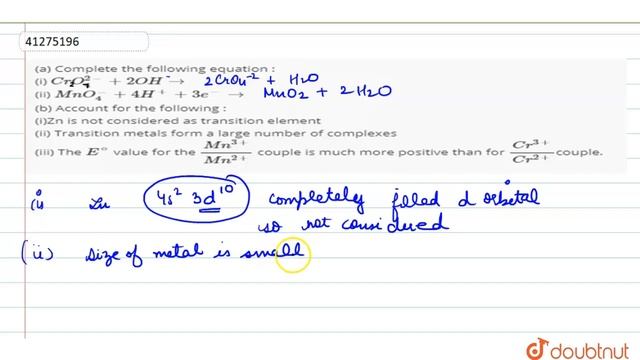 41275196
(a) Complete the following equation :
(i) Cr₂O₇²⁻ + 2OH⁻ → 2CrO₄⁻² + H₂O
(ii) MnO₄⁻ + 4H⁺ + 3e⁻ → MnO₂ + 2H₂O
(b) Account for the following :
(i)Zn is not considered as transition element
(ii) Transition metals form a large number of complexes
(iii) The E° value for the Mn³⁺/Mn²⁺ couple is much more positive than for Cr³⁺/Cr²⁺ couple.
(i) Zn 4s² 3d¹⁰ completely filled d orbital
so not considered
(ii) size of metal is small
doubtnut